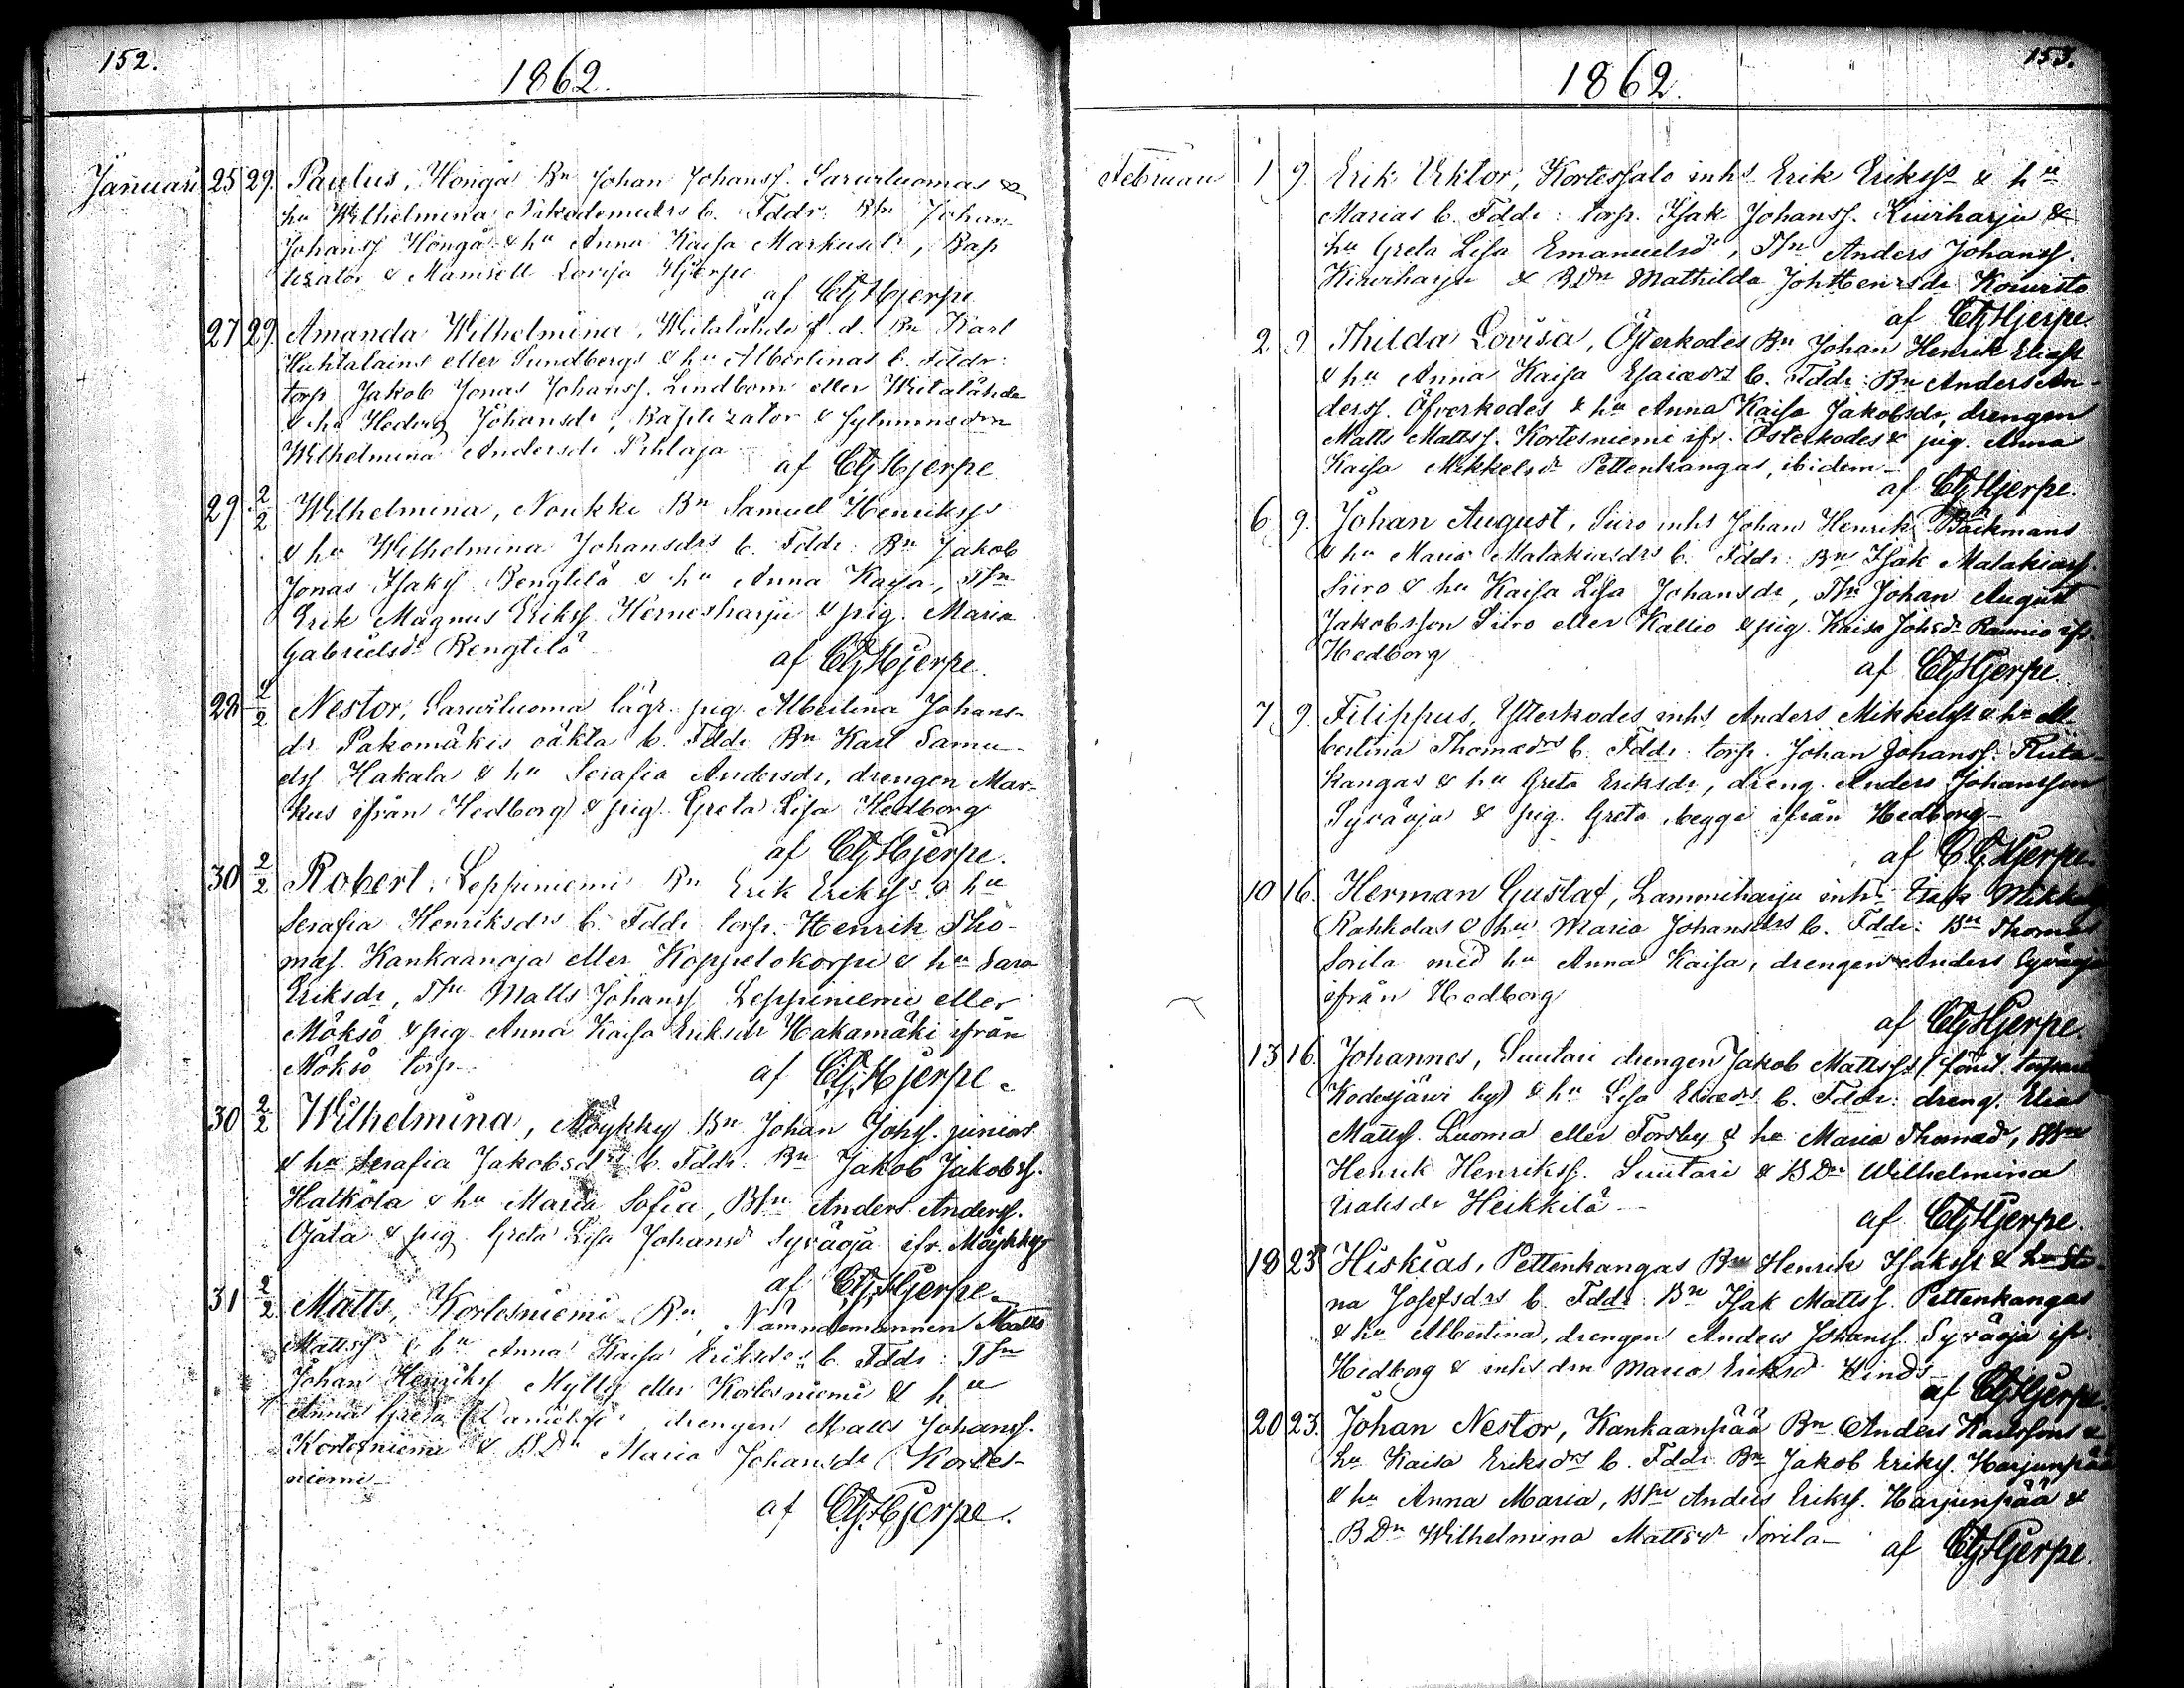 152.
1862.
Januari 25 29. Paulus, Hongå Bn Johan Johanss. Saruvluomas &
hu Wilhelmina Nikodemidrs b. Fddr. Bfn Johan
Johanss Hongå & hu Anna Kaisa Markusdr, Bap
tizator & Mamsell Lovisa Hjerpe
af CGHjerpe
27 29. Amanda Wilhelmina, Wiitalähde f. d. Bn Karl
Huhtalains eller Sundbergs & hu Albertinas b. Fddr:
torp Jakob Jonas Johanss. Lindbom eller Wiitalähde
& hu Hedvig Johansdr, Baptizator &
Wilhelmina Andersdr Pihlaja
af CGHjerpe
29 2/2 Wilhelmina, Noukki Bn Samuel Henrikss
& hu Wilhelmina Johansdrs b. Fddr: Bn Jakob
Jonas Isakss Rengtilä & hu Anna Kaisa, Tfn
Erik Magnus Erikss. Hernesharju & pig. Maria
Gabrielsdr Rengtilä
af CGHjerpe.
28 2/2 Nestor, Saruvluoma lägr. pig. Albertina Johans-
dr Pakomäkis oäkta b. Fddr Bn Karl Samu-
elss Hakala & hu Serafia Andersdr, drengen Mar-
kus ifrån Hedborg & pig. Greta Lisa Hedborg
af CGHjerpe.
30 2/2 Robert, Leppiniemi Bn Erik Erikss & hu
Serafia Henriksdrs b. Fddr torp. Henrik Tho-
mas. Kankaanoja eller Koppelokorpi & hu Sara
Eriksdr, Tfn Matts Johanss Leppiniemi eller
Möksö & pig Anna Kaisa Eriksdr Hakamäki ifrån
Möksö torp
af CGHjerpe.
30 2/2 Wilhelmina, Möykky Bn Johan Johs. juniors
& hu Serafia Jakobsdrs b. Fddr. Bn Jakob Jakobss.
Halkola & hu Maria Sofia, Bfn Anders Anderss.
Ojala & pig Greta Lisa Johansd Syväoja ifr. Möykky
af CGHjerpe.
31 2/2 Matts, Kortesniemi Bn, Nämndemannen Matts
Mattss & hu Anna Kaisa Eriksdrs b. Fddr: Tfn
Johan Henrikss Mylly eller Kortesniemi & hu
Anna Greta Danielsdr, drengen Matts Johanss.
Kortesniemi & BDn Maria Johansdr Kortes-
niemi
af CGHjerpe.
153.
1862.
Februari 1 9. Erik Viktor, Kortessalo inhs Erik Erikss & hu
Marias b. Fddr: torp. Isak Johanss. Kiviharju &
hu Greta Lisa Emanuelsd, Tfn Anders Johanss.
Kiviharju & BDn Mathilda JohHenrsdr Koivisto
af CGHjerpe.
2. 9. Thilda Lovisa, Österkodes Bn Johan Henrik Eliass
& hu Anna Kaisa Esaiædrs b. Fddr: Bn Anders An-
derss. Öfverkodes & hu Anna Kaisa Jakobsdr, drengen
Matts Mattss. Kortesniemi ifr. Österkodes & pig. Anna
Kaisa Mikkelsdr Pettenkangas, ibidem
af CGHjerpe.
6 9. Johan August, Siiro inhs Johan Henrik Backmans
& hu Maria Malakiasdrs b. Fddr: Bn Isak Malakiass.
Siiro & hu Kaisa Lisa Johansdr, Tfn Johan August
Jakobsson Siiro eller Kallio & pig. Kaisa Johsdr Raunio ifr.
Hedborg
af CGHjerpe.
7 9. Filippus, Ytterkodes inhs Anders Mikkelss & hu Al
bertina Thomædrs b. Fddr torp. Johan Johanss. Riita-
kangas & hu Greta Eriksdr, dreng. Anders Johansson
Syväoja & pig. Greta begge ifrån Hedborg
af CGHjerpe.
10 16. Herman Gustaf, Lammiharju inhs Isak Mikkels
Rahkolas & hu Maria Johansdrs b. Fddr: Bn Thomas
Sorila med hu Anna Kaisa, drengen Anders Syväoja
ifrån Hedborg
af CGHjerpe.
13 16. Johannes, Suutari drengen Jakob Mattss
Kodesjärvi by) & hu Lisa Eliædrs b. Fddr: dreng. Elias
Mattss. Luoma eller Forsby & hu Maria Thomædr,
Henrik Henrikss. Suutari & BDn Wilhelmina
Isaksdr Heikkilä
af CGHjerpe.
18 23. Hiskias, Pettenkangas Bn Henrik Isakss & hu Ste-
na Josefsdrs b. Fddr: Bn Isak Mattss. Pettenkangas
& hu Albertina, drengen Anders Johanss. Syväoja ifr.
Hedborg & inhsdrn Maria Eriksd Hinds
af CGHjerpe.
20 23. Johan Nestor, Kankaanpää Bn Anders Karlssons &
hu Kaisa Eriksdrs b. Fddr Bn Jakob Erikss. Harjunpää
& hu Anna Maria, Bfn Anders Erikss. Harjunpää &
BDn Wilhelmina Mattsdr Sorila
af CGHjerpe.